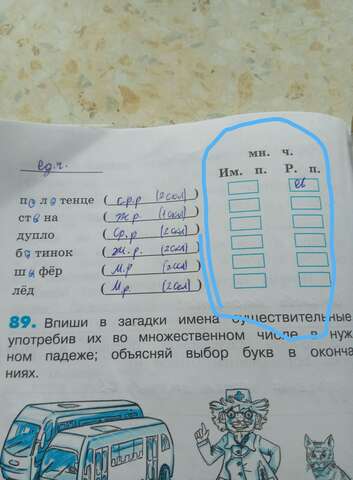 ед.ч.
мн. ч.
Им. п. Р. п.
пол тенце (ср.р (2скл)) ев
ств на (ж.р (1скл))
дупло (Ср.р (2скл))
б тинок (ж.р. (2скл))
ш фёр (М.р (2скл))
лёд (М.р. (2скл))
89. Впиши в загадки имена существительные
употребив их во множественном числе в нуж
ном падеже; объясняй выбор букв в оконча
ниях.